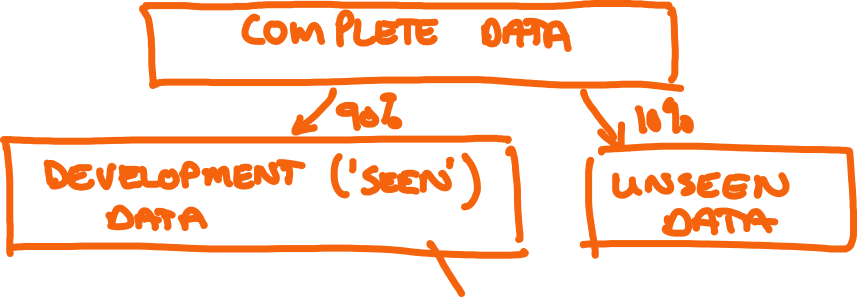 COMPLETE DATA
90%
10%
DEVELOPMENT ('SEEN')
DATA
UNSEEN
DATA